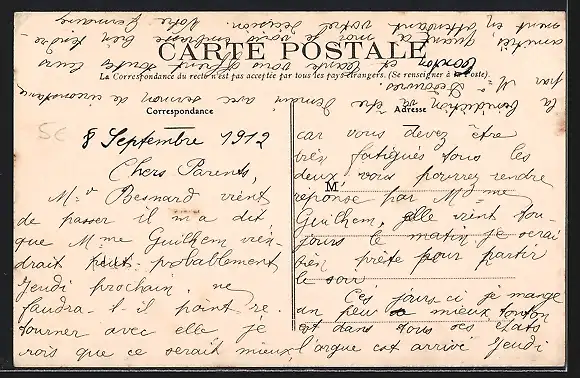 CARTE POSTALE
La Correspondance du recto n'est pas acceptée par tous les pays étrangers. (Se renseigner à la Poste).
Correspondance
Adresse
M
5€
8 Septembre 1912
Chers Parents,
Mr Besnard vient
de passer il m'a dit
que Mme Guilhem vien-
drait probablement
Jeudi prochain. ne
faudra-t-il point re-
tourner avec elle je
crois que ce serait mieux
car vous devez être
très fatigués tous les
deux, vous pourrez rendre
réponse par Mme
Guilhem, elle vient tou-
jours le matin je serai
bien prête pour partir
le soir
Ces jours-ci je mange
un peu mieux, tonton
est dans tous ses états
l'argue est arrivé Jeudi
la bénédiction va être demain avec sermon de circonstance
par Mr Decournos
tonton et tante vous offrent toutes leurs
amitiés, quant à moi je vous embrasse bien tendre-
ment en attendant votre décision. Votre Germaine